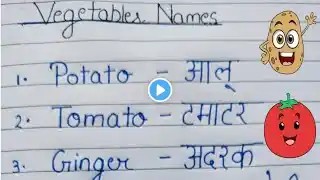 Vegetables Names
1. Potato - आलू
2. Tomato - टमाटर
3. Ginger - अदरक